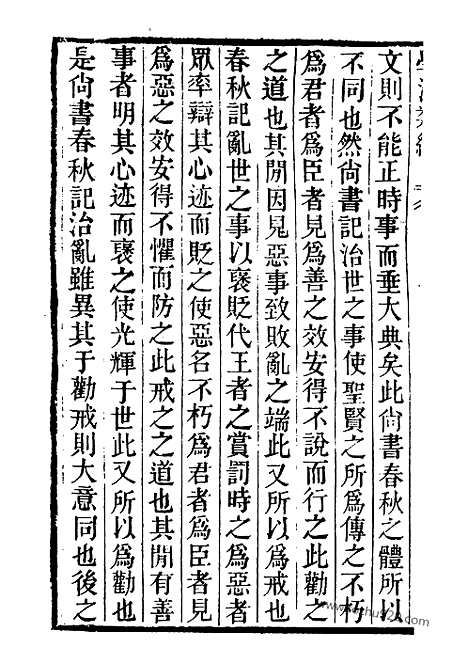 文則不能正時事而垂大典矣此尙書春秋之體所以
不同也然尙書記治世之事使聖賢之所爲傳之不朽
爲君者爲臣者見爲善之效安得不說而行之此勸之
之道也其閒因見惡事致敗亂之端此又所以爲戒也
春秋記亂世之事以褒貶代王者之賞罰時之爲惡者
眾率辯其心迹而貶之使惡名不朽爲君者爲臣者見
爲惡之效安得不懼而防之此戒之之道也其閒有善
事者明其心迹而褒之使光輝于世此又所以爲勸也
是尙書春秋記治亂雖異其于勸戒則大意同也後之